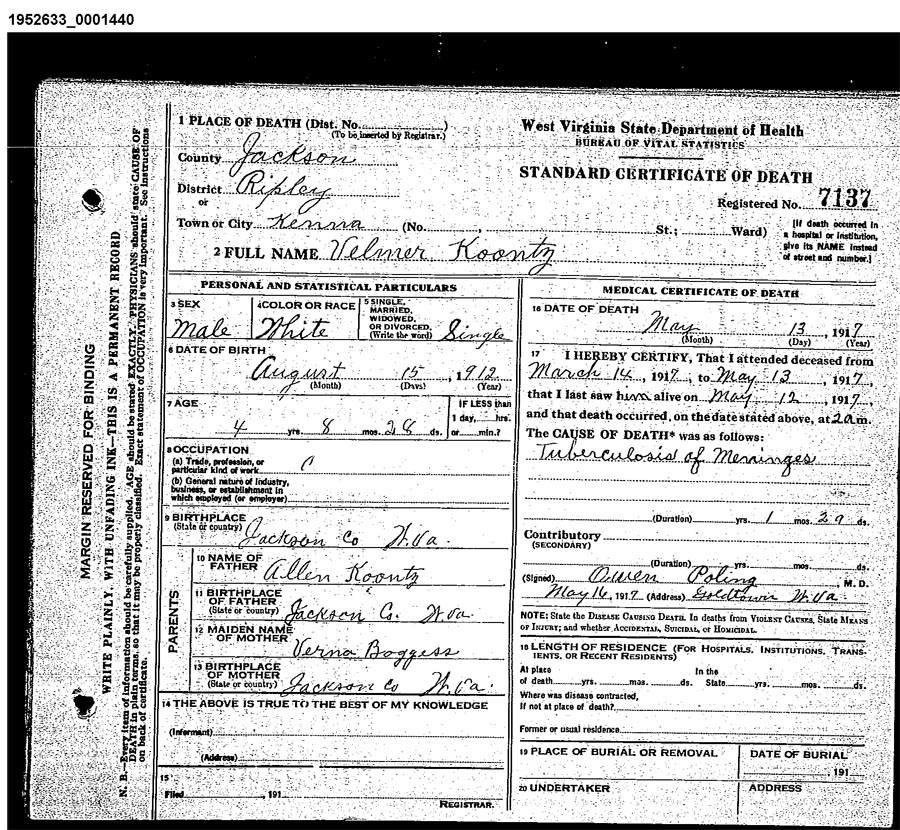 1952633_0001440
1 PLACE OF DEATH (Dist. No...............)
(To be inserted by Registrar.)
County Jackson
District Ripley
or
Town or City Kenna (No. , St.; Ward)
2 FULL NAME Velmer Koontz
West Virginia State Department of Health
BUREAU OF VITAL STATISTICS
STANDARD CERTIFICATE OF DEATH
Registered No. 7137
[If death occurred in
a hospital or institution,
give its NAME instead
of street and number.]
MARGIN RESERVED FOR BINDING
WRITE PLAINLY, WITH UNFADING INK—THIS IS A PERMANENT RECORD
N. B.—Every item of information should be carefully supplied. AGE should be stated EXACTLY. PHYSICIANS should state CAUSE OF
DEATH in plain terms, so that it may be properly classified. Exact statement of OCCUPATION is very important. See instructions
on back of certificate.
PERSONAL AND STATISTICAL PARTICULARS
3 SEX
Male
4 COLOR OR RACE
White
5 SINGLE,
MARRIED,
WIDOWED,
OR DIVORCED,
(Write the word) Single
6 DATE OF BIRTH
August 15, 1912
(Month) (Days) (Year)
7 AGE
4 yrs. 8 mos. 28 ds.
IF LESS than
1 day, hrs.
or min.?
8 OCCUPATION
(a) Trade, profession, or
particular kind of work
(b) General nature of industry,
business, or establishment in
which employed (or employer)
9 BIRTHPLACE
(State or country) Jackson Co W.Va.
PARENTS
10 NAME OF
FATHER Allen Koontz
11 BIRTHPLACE
OF FATHER
(State or country) Jackson Co. W.Va.
12 MAIDEN NAME
OF MOTHER Verna Boggess
13 BIRTHPLACE
OF MOTHER
(State or country) Jackson Co W.Va.
14 THE ABOVE IS TRUE TO THE BEST OF MY KNOWLEDGE
(Informant)
(Address)
15
Filed , 191
REGISTRAR.
MEDICAL CERTIFICATE OF DEATH
16 DATE OF DEATH
May 13, 1917
(Month) (Day) (Year)
17 I HEREBY CERTIFY, That I attended deceased from
March 14, 1917, to May 13, 1917,
that I last saw him alive on May 12, 1917,
and that death occurred, on the date stated above, at 2 a m.
The CAUSE OF DEATH* was as follows:
Tuberculosis of Meninges
(Duration) yrs. 1 mos. 29 ds.
Contributory
(SECONDARY)
(Duration) yrs. mos. ds.
(Signed) Owen Poling, M. D.
May 16, 1917 (Address) Goldtown W.Va.
NOTE: State the DISEASE CAUSING DEATH. In deaths from VIOLENT CAUSES, State MEANS
OF INJURY; and whether ACCIDENTAL, SUICIDAL, or HOMICIDAL.
18 LENGTH OF RESIDENCE (FOR HOSPITALS, INSTITUTIONS, TRANS-
IENTS, OR RECENT RESIDENTS)
At place In the
of death yrs. mos. ds. State yrs. mos. ds.
Where was disease contracted,
If not at place of death?
Former or usual residence
19 PLACE OF BURIAL OR REMOVAL
DATE OF BURIAL
, 191
20 UNDERTAKER
ADDRESS